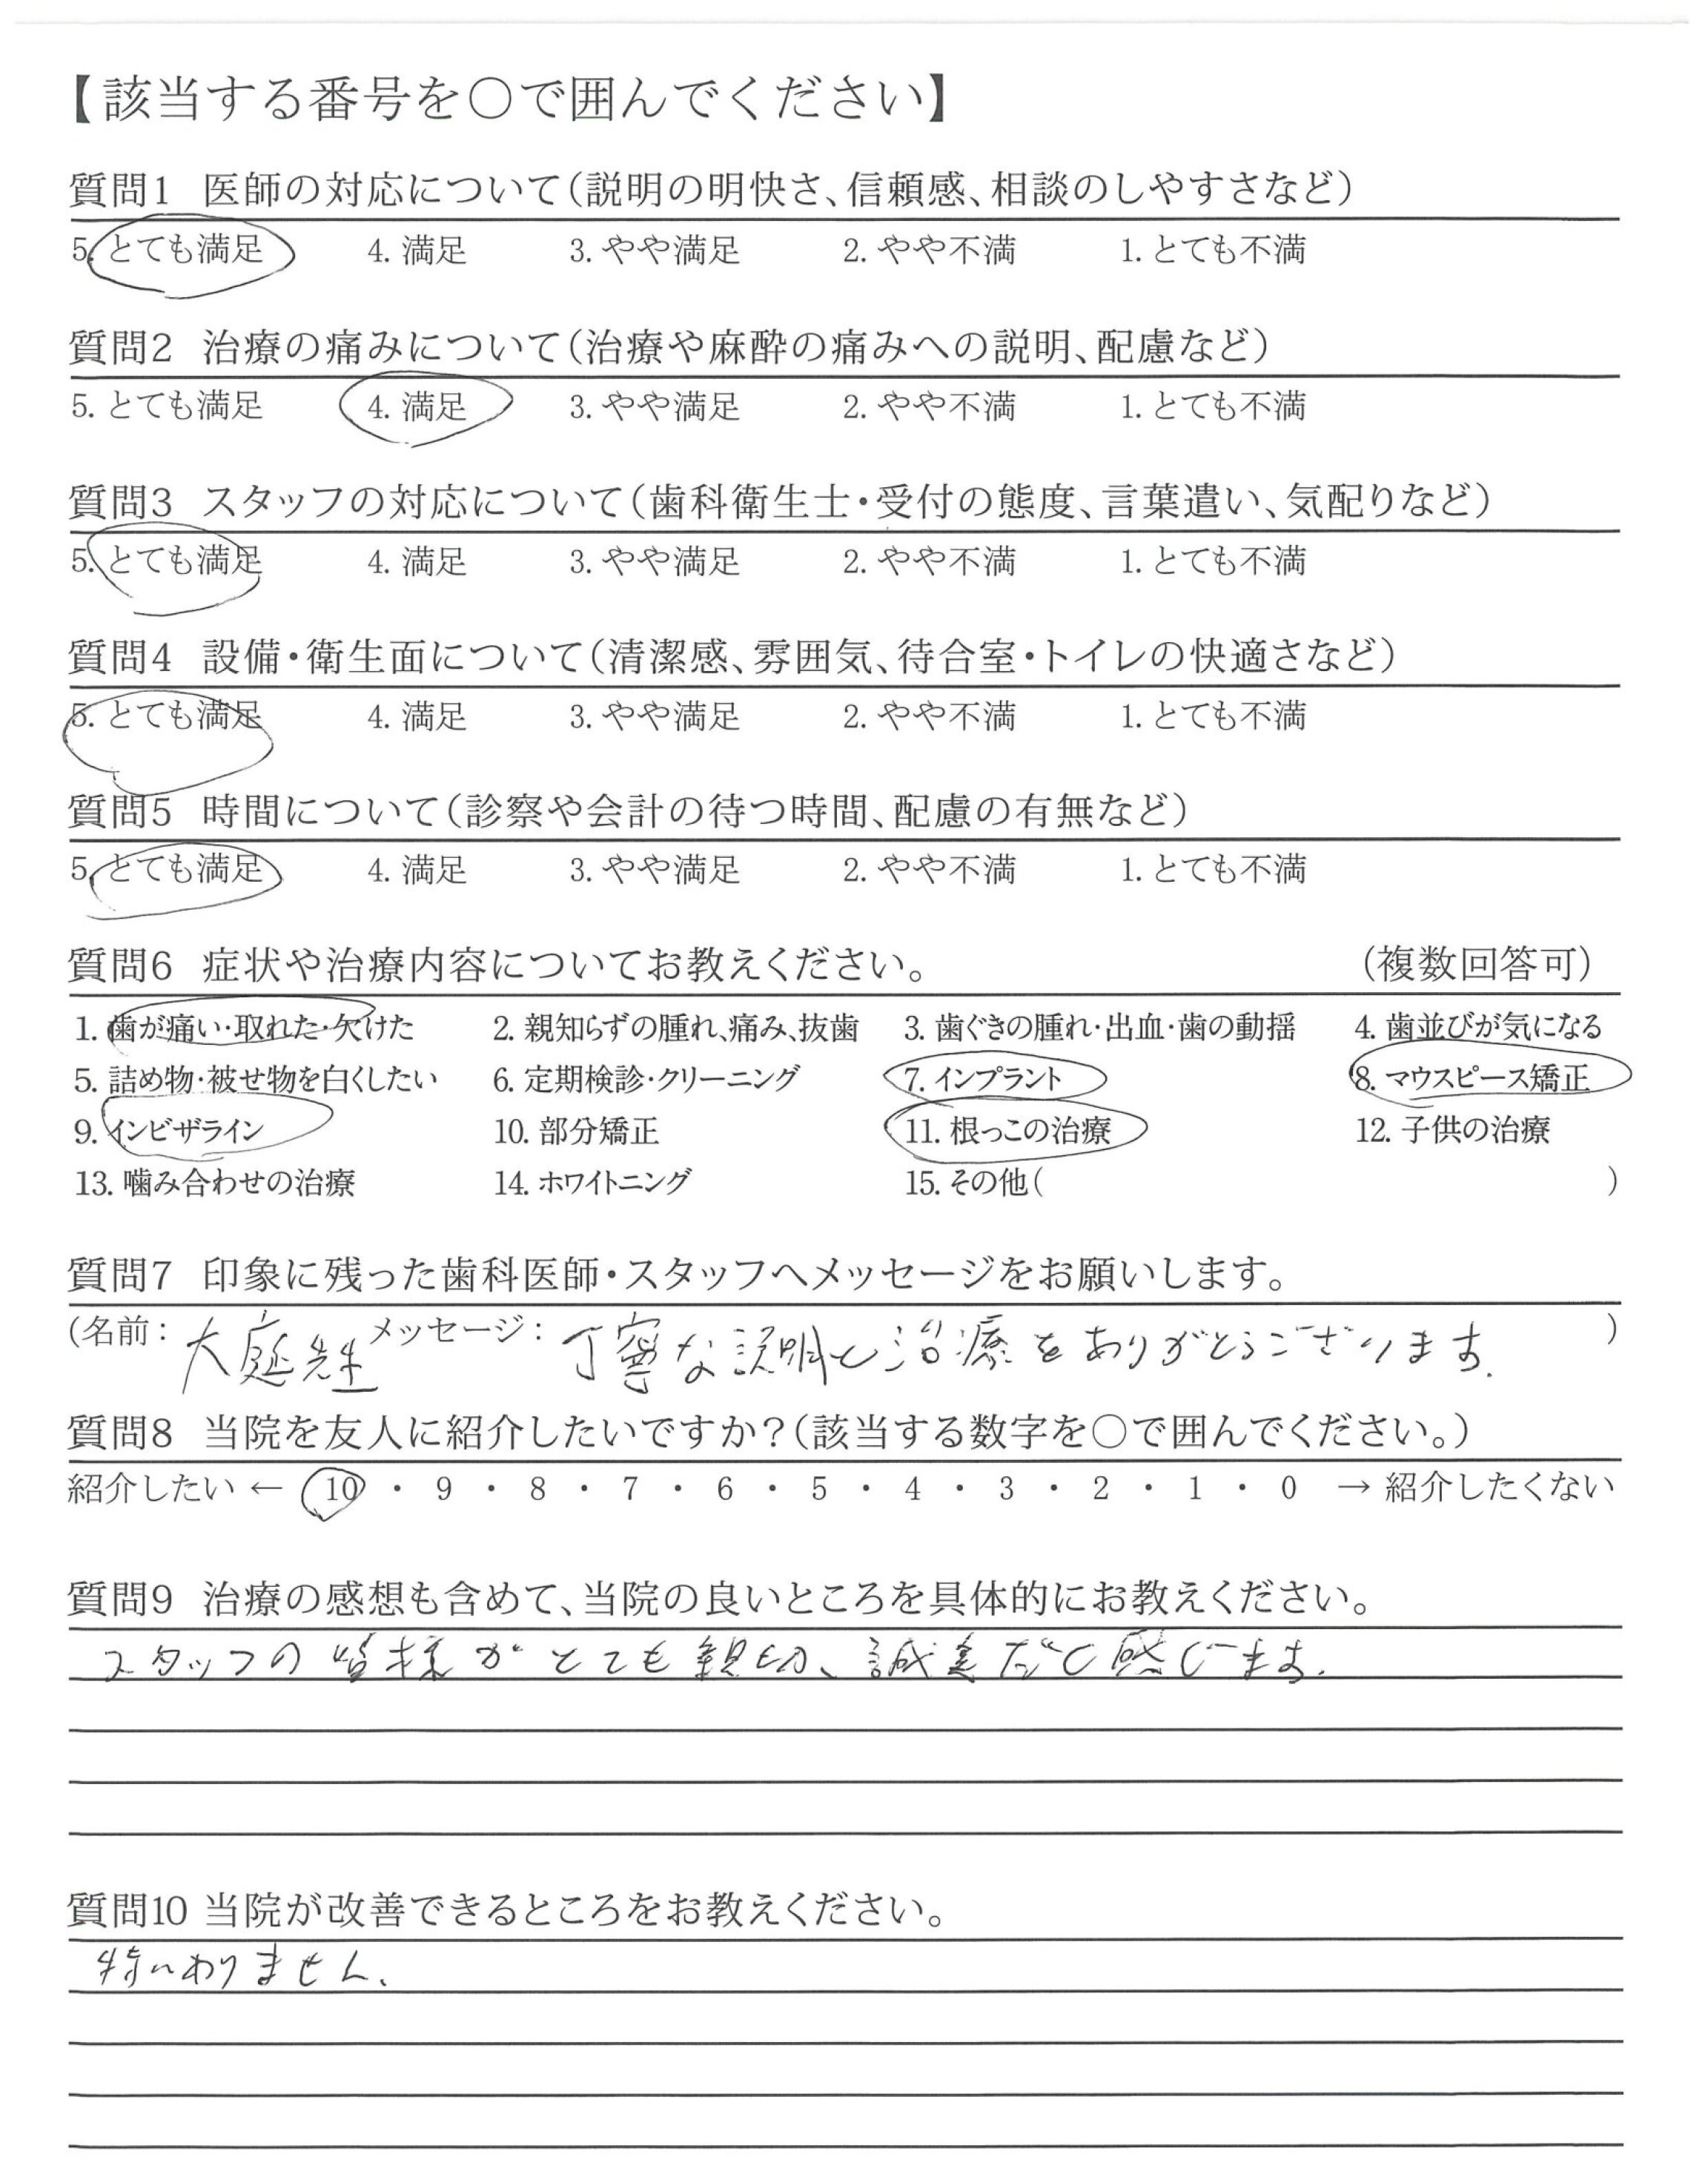 【該当する番号を○で囲んでください】
質問1 医師の対応について(説明の明快さ、信頼感、相談のしやすさなど)
5. とても満足 4. 満足 3. やや満足 2. やや不満 1. とても不満
質問2 治療の痛みについて(治療や麻酔の痛みへの説明、配慮など)
5. とても満足 4. 満足 3. やや満足 2. やや不満 1. とても不満
質問3 スタッフの対応について(歯科衛生士・受付の態度、言葉遣い、気配りなど)
5. とても満足 4. 満足 3. やや満足 2. やや不満 1. とても不満
質問4 設備・衛生面について(清潔感、雰囲気、待合室・トイレの快適さなど)
5. とても満足 4. 満足 3. やや満足 2. やや不満 1. とても不満
質問5 時間について(診察や会計の待つ時間、配慮の有無など)
5. とても満足 4. 満足 3. やや満足 2. やや不満 1. とても不満
質問6 症状や治療内容についてお教えください。 (複数回答可)
1. 歯が痛い・取れた・欠けた 2. 親知らずの腫れ、痛み、抜歯 3. 歯ぐきの腫れ・出血・歯の動揺 4. 歯並びが気になる
5. 詰め物・被せ物を白くしたい 6. 定期検診・クリーニング 7. インプラント 8. マウスピース矯正
9. インビザライン 10. 部分矯正 11. 根っこの治療 12. 子供の治療
13. 噛み合わせの治療 14. ホワイトニング 15. その他( )
質問7 印象に残った歯科医師・スタッフへメッセージをお願いします。
(名前: 大庭先生 メッセージ: 丁寧な説明と治療をありがとうございます. )
質問8 当院を友人に紹介したいですか?(該当する数字を○で囲んでください。)
紹介したい ← 10 ・ 9 ・ 8 ・ 7 ・ 6 ・ 5 ・ 4 ・ 3 ・ 2 ・ 1 ・ 0 → 紹介したくない
質問9 治療の感想も含めて、当院の良いところを具体的にお教えください。
スタッフの皆様がとても親切、誠実だと感じます.
質問10 当院が改善できるところをお教えください。
特にありません.